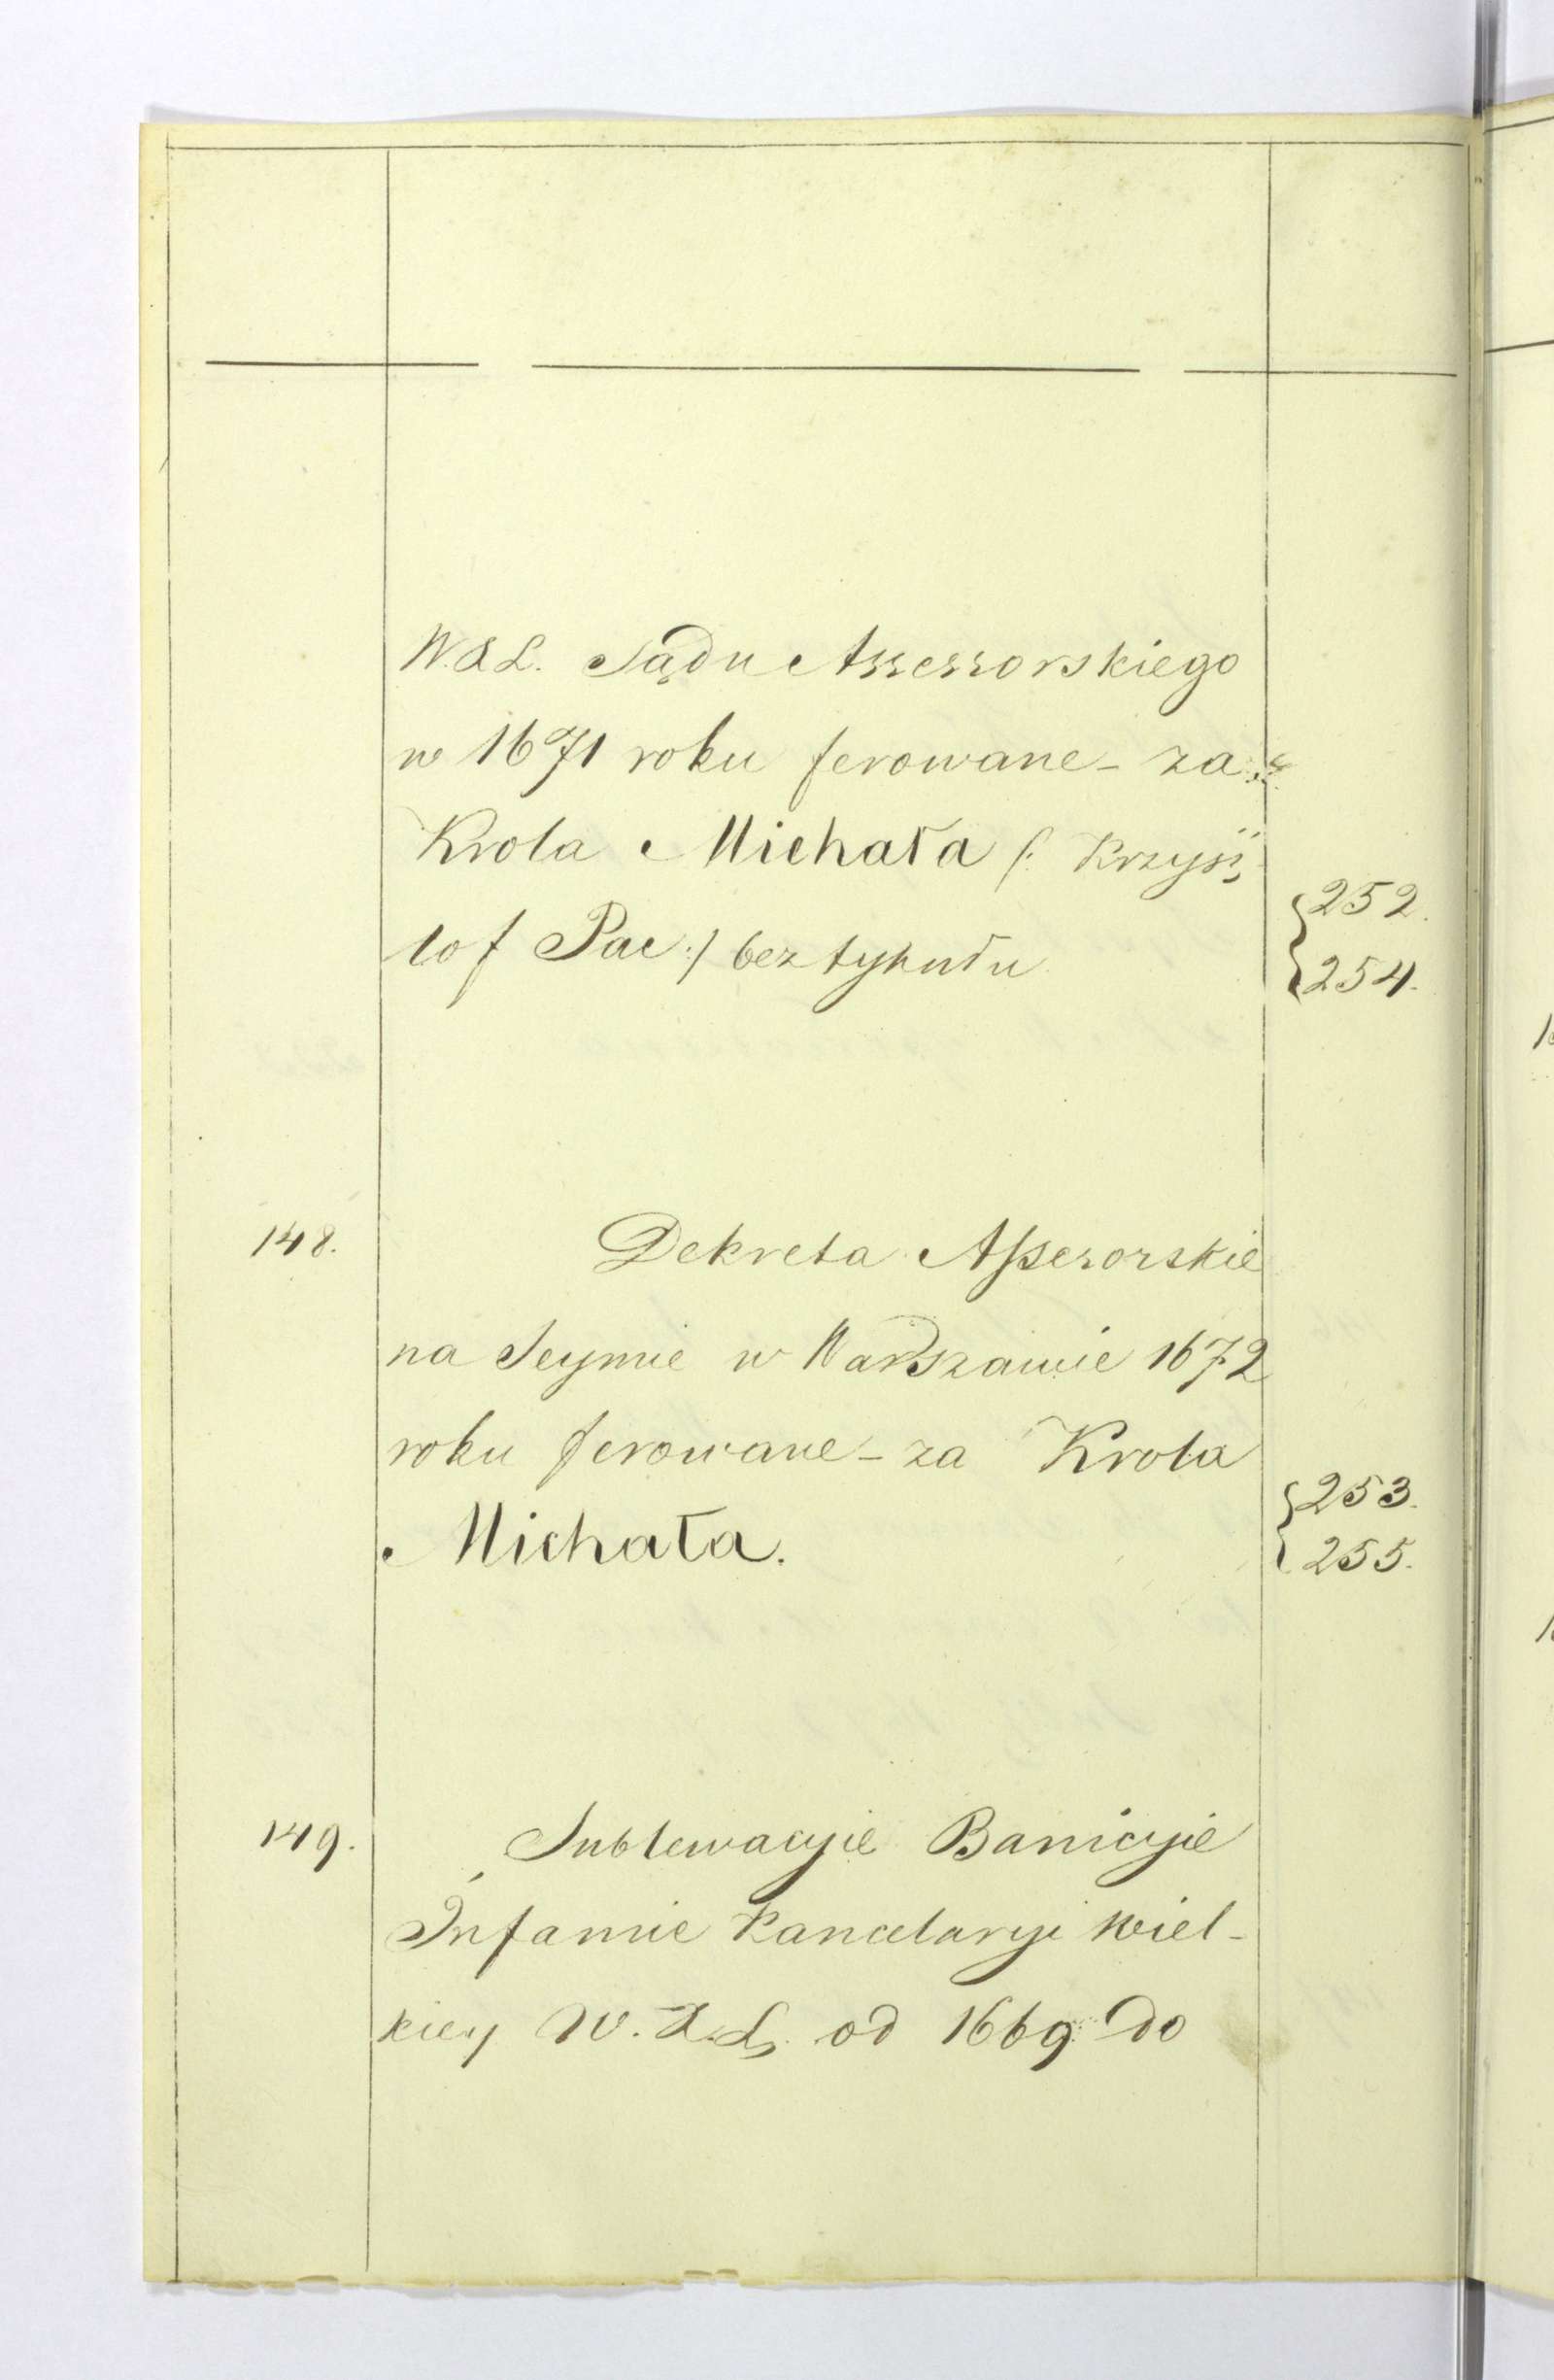 W. X L. Sądu Assessorskiego
w 1671 roku ferowane – za
Krola Michała /: Krzysz
tof Pac :/ bez tytułu
{252.
{254.
148. Dekreta Assesorskie
na Seymie w Warszawie 1672
roku ferowane – za Krola
Michała.
{253.
255.
149. Sublewacyie Banicyie
Infamie Kancelaryi Wiel-
kiey W. X. L. od 1669 do